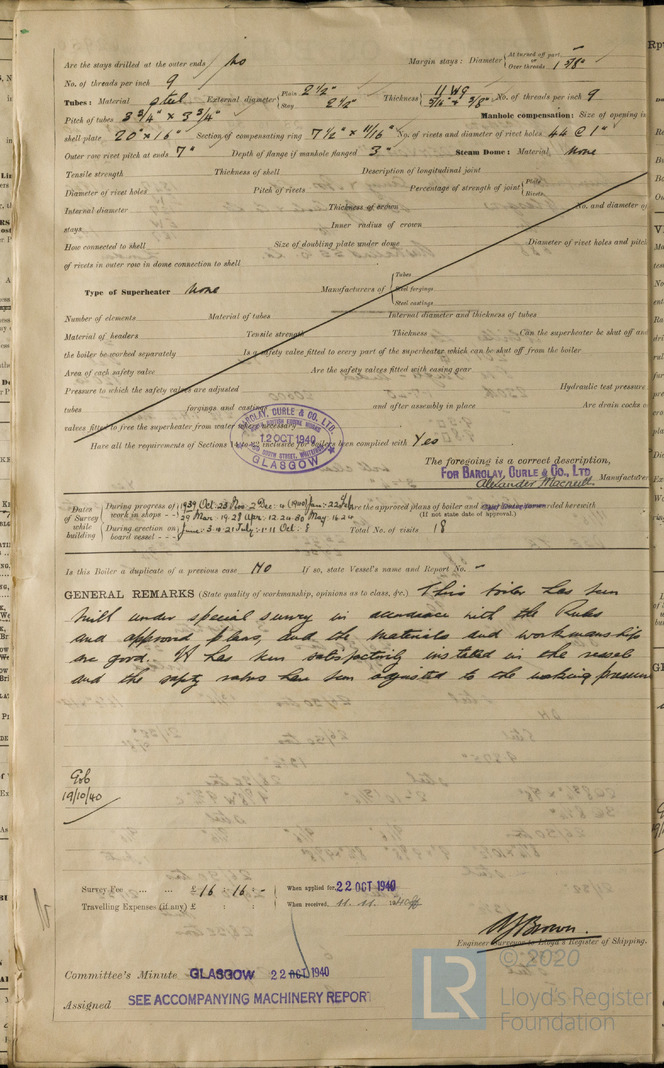 Are the stays drilled at the outer ends No Margin stays: Diameter At turned off part, " Over threads 1 5/8"
No. of threads per inch 9
Tubes: Material Steel External diameter Plain 2 1/2" Stay 2 1/2" Thickness 11 WG 5/16" & 3/8" No. of threads per inch 9
Pitch of tubes 3 3/4" x 3 3/4" Manhole compensation: Size of opening in
shell plate 20" x 16" Section of compensating ring 7 1/2" x 11/16" No. of rivets and diameter of rivet holes 44 @ 1"
Outer row rivet pitch at ends 7" Depth of flange if manhole flanged 3" Steam Dome: Material None
Tensile strength Thickness of shell Description of longitudinal joint
Diameter of rivet holes Pitch of rivets Percentage of strength of joint Plate Rivets
Internal diameter Thickness of crown No. and diameter of
stays Inner radius of crown
How connected to shell Size of doubling plate under dome Diameter of rivet holes and pitch
of rivets in outer row in dome connection to shell
Type of Superheater None Manufacturers of Tubes Steel forgings Steel castings
Number of elements Material of tubes Internal diameter and thickness of tubes
Material of headers Tensile strength Thickness Can the superheater be shut off and
the boiler be worked separately Is a safety valve fitted to every part of the superheater which can be shut off from the boiler
Area of each safety valve Are the safety valves fitted with easing gear
Pressure to which the safety valves are adjusted Hydraulic test pressure
tubes forgings and castings and after assembly in place Are drain cocks or
valves fitted to free the superheater from water where necessary
BARCLAY, CURLE & CO., LTD.
12 OCT 1940
GLASGOW
Have all the requirements of Sections inclusive for boilers been complied with Yes
The foregoing is a correct description,
FOR BARCLAY, CURLE & CO., LTD
Alexander Macneill Manufacturer
Dates of Survey while building
During progress of work in shops - - 1939 Oct: 23 Nov: 2 Dec: 4 (1940) Jan: 22 Feb 29 Mar: 19.28 Apr. 12.24.30 May 16.24
During erection on board vessel - - - June: 3.4.21 July: 1.11 Oct. 8
Are the approved plans of boiler and forwarded herewith
(If not state date of approval.)
Total No. of visits 18
Is this Boiler a duplicate of a previous case No If so, state Vessel's name and Report No. -
GENERAL REMARKS (State quality of workmanship, opinions as to class, &c.) This boiler has been
built under special survey in accordance with the Rules
and approved plans, and the materials and workmanship
are good. It has been satisfactorily installed in the vessel
and the safety valves have been adjusted to the working pressure
19/10/40
Survey Fee ... ... £ 16 : 16 : - When applied for, 22 OCT 1940
Travelling Expenses (if any) £ : : When received, 11. 11. 1940
Engineer Surveyor to Lloyd's Register of Shipping.
Committee's Minute GLASGOW 22 OCT 1940
Assigned SEE ACCOMPANYING MACHINERY REPORT
© 2020
LR
Lloyd's Register
Foundation